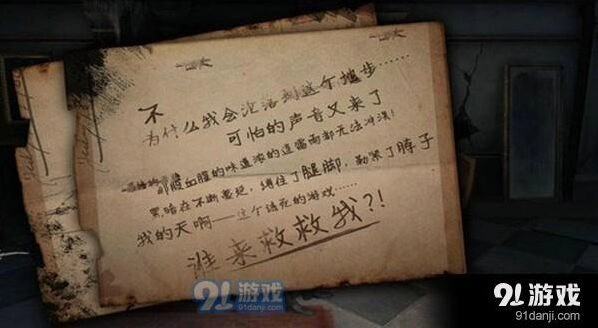 不
为什么我会沦落到这个地步……
可怕的声音又来了
血腥的味道浓的连雷雨都无法冲淡!
黑暗在不断蔓延,缚住了腿脚,勒紧了脖子
我的天啊——这个该死的游戏……
谁来救救我?!
91游戏
91danji.com
91游戏
91danji.com